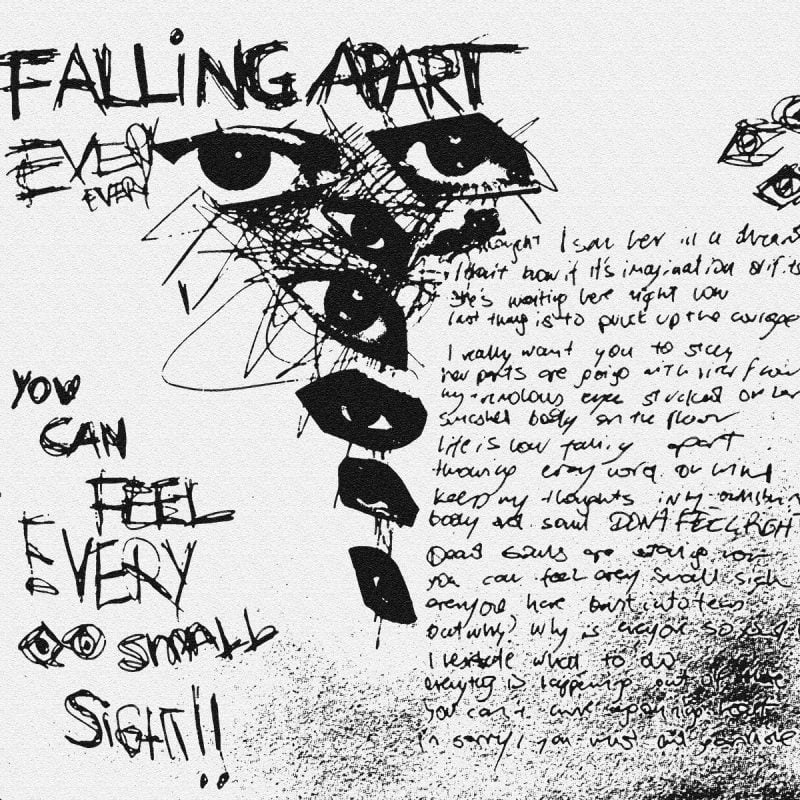 FALLiNG APART
EVERY
EVERY
YOU
CAN
FEEL
EVERY
SMALL
SiGHT!!
thought I saw her in a dream
I don't know if it's imagination or if it's
she's waiting here right now
last thing is to pluck up the courage
I really want you to stay
her parts are going with
my eyes stucked on her
smashed body on the floor
life is now falling apart
throwing every word on wind
keeping my thoughts in my
body and soul DON'T FEEL RIGHT
Dead souls are now
you can feel every small sigh
everyone here burst into tears
but why? why is everyone so
I what to do
everything is happening out of
you can't
I'm sorry, you must not